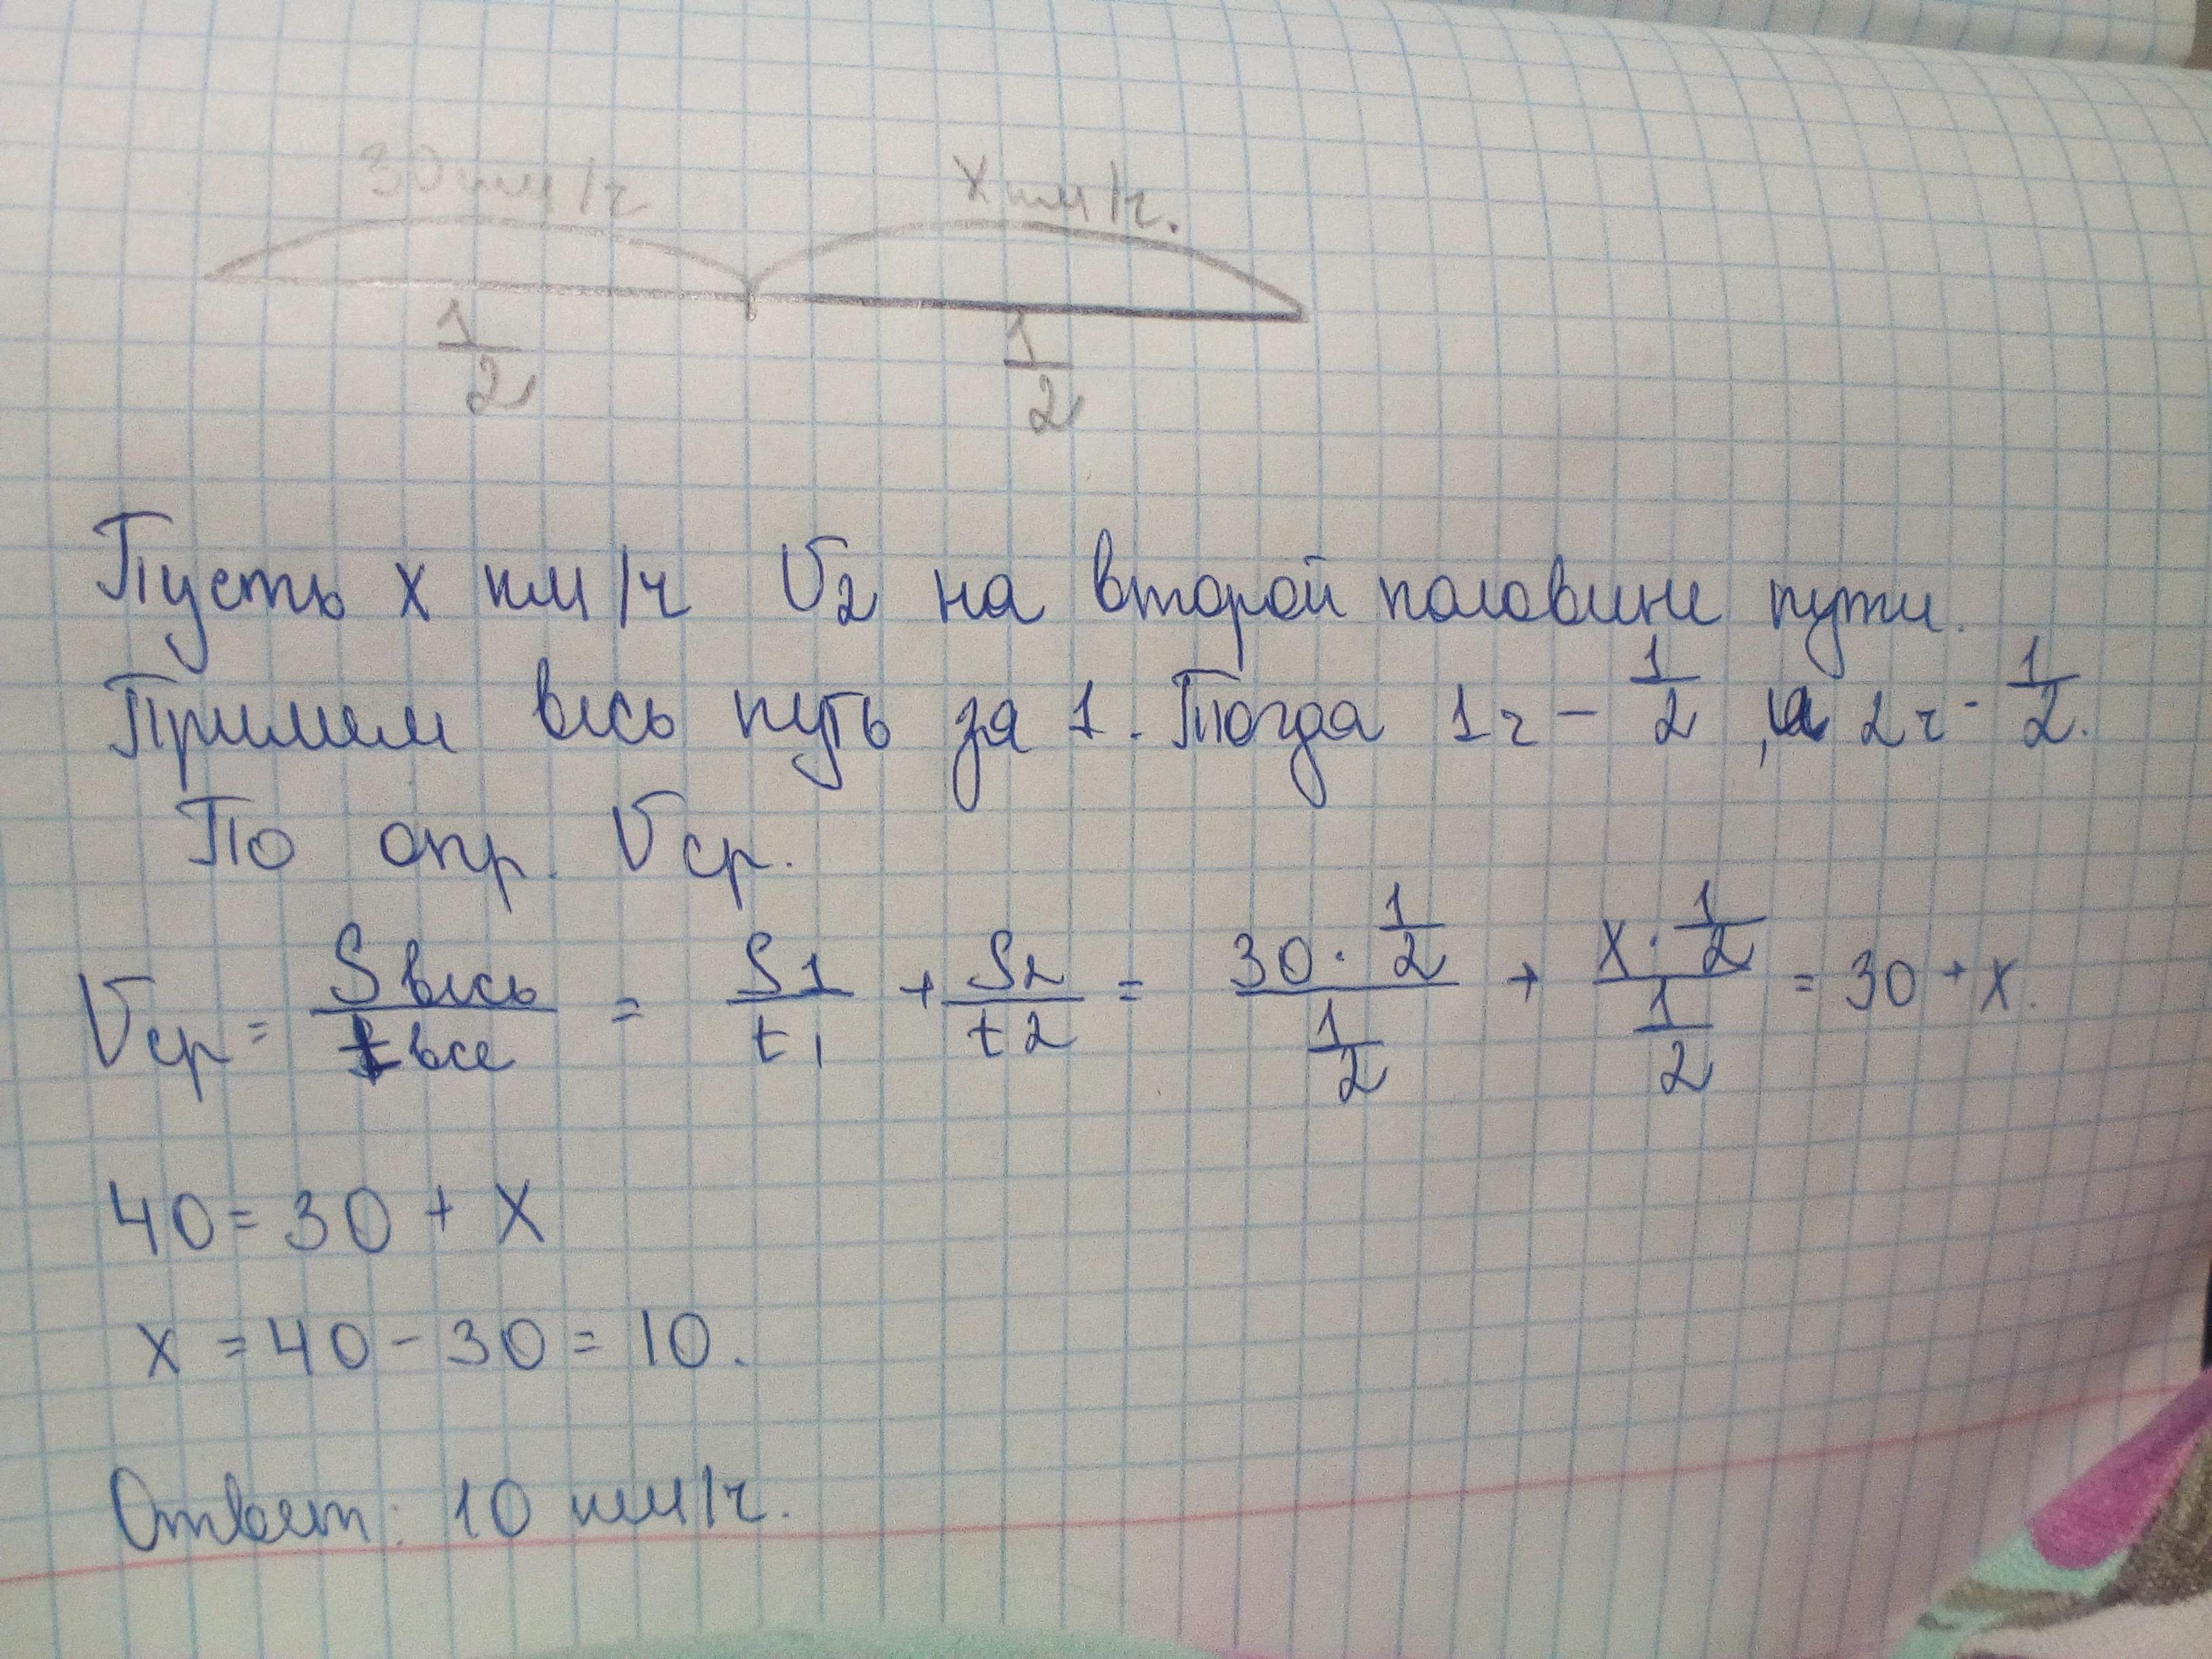 30 км/ч х км/ч.
1/2 1/2
Пусть х км/ч V2 на второй половине пути.
Примем весь путь за 1. Тогда 1ч – 1/2, а 2ч - 1/2.
По опр. Vср.
Vср = Sвесь/tвсе = S1/t1 + S2/t2 = (30 · 1/2)/(1/2) + (х · 1/2)/(1/2) = 30 + х.
40 = 30 + х
х = 40 – 30 = 10.
Ответ: 10 км/ч.